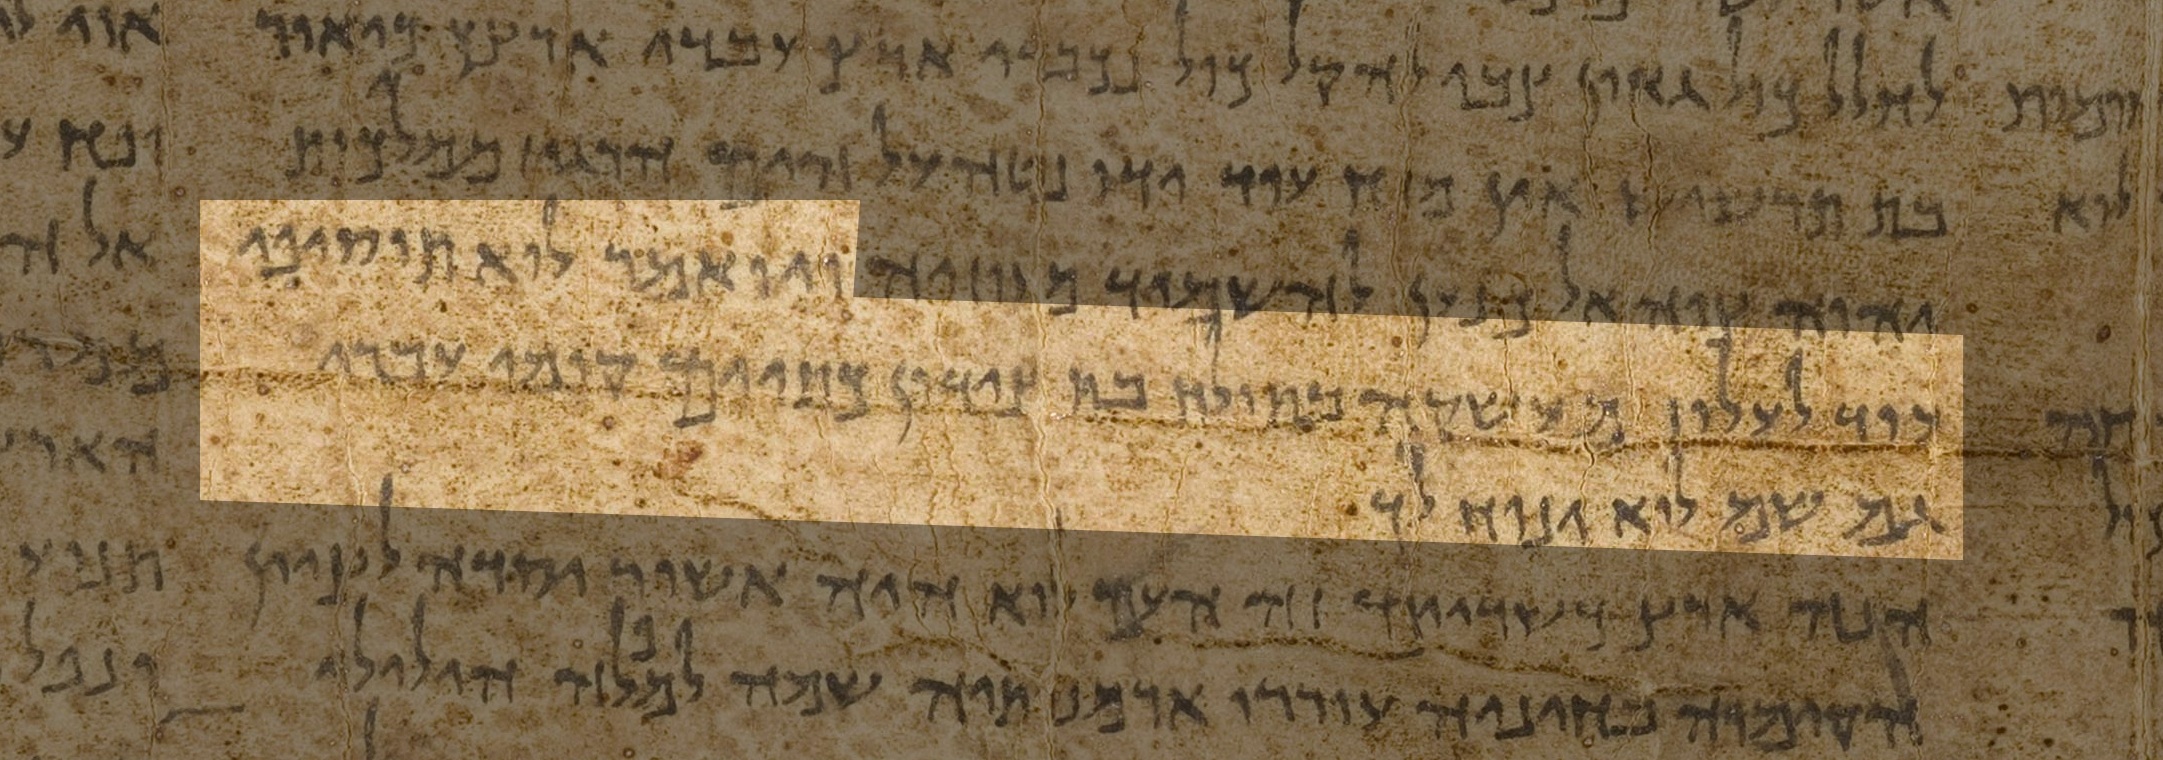 לחלל כול גאון צבי להקל כול נכבדי ארץ עבדי ארצך כיאור
בת תרשיש אין מזח עוד ידו נטה על הים הרגיז ממלכות
יהוה צוה אל כנען להשמיד מעוזיה ויואמר לוא תוסיפי
עוד לעלוז המעשקה בתולת בת צידון כתיים קומי עברי
גם שם לוא ינוח לך
הנה ארץ כשדיים זה העם לוא היה אשור יסדה לציים
הקימו בחוניה עוררו ארמנותיה שמה למפלה הילילו